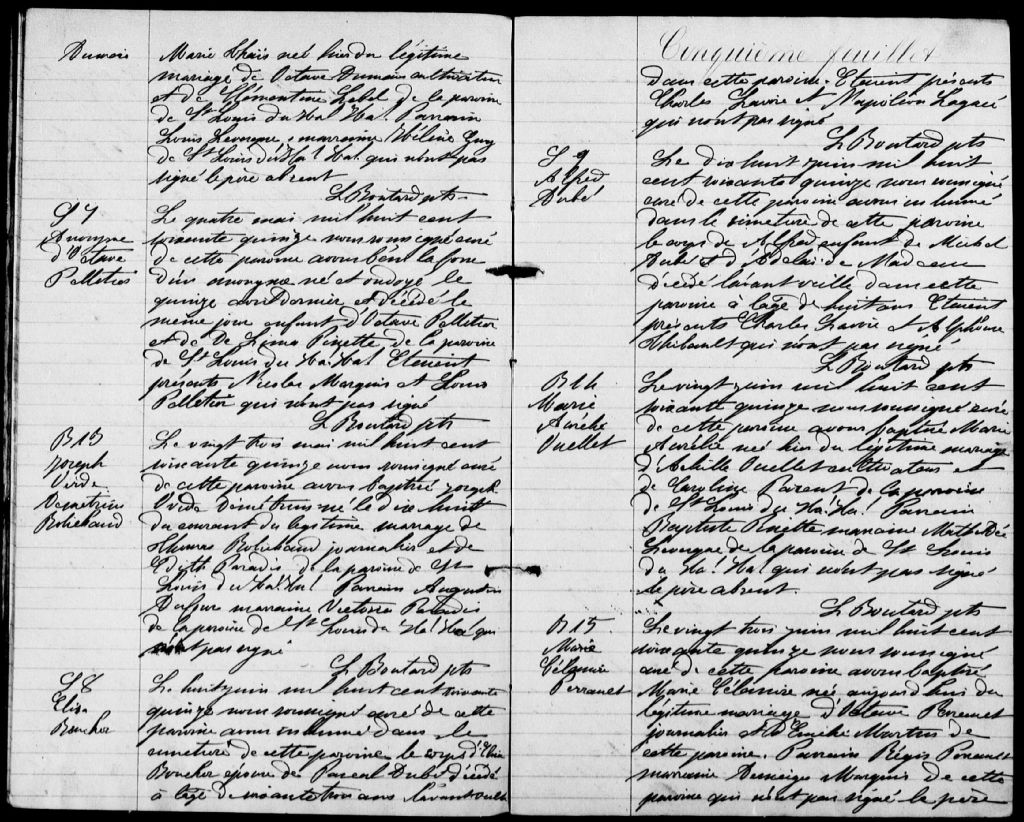 Dumais
Marie Thaïs née hier du légitime
mariage de Octave Dumais cultivateur
et de Clémentine Lebel de la paroisse
de St Louis du Ha! Ha! Parrain
Louis Levesque, marraine Hélène Guy
de St Louis du Ha! Ha! qui n'ont pas
signé le père absent
L Boutard ptre
S 7
Anonyme
d'Octave
Pelletier
Le quatre mai mil huit cent
soixante quinze nous soussigné curé
de cette paroisse avons béni la fosse
d'un anonyme né et ondoyé le
quinze avril dernier et décédé le
même jour enfant d'Octave Pelletier
et de De Lima Pinette de la paroisse
de St Louis du Ha! Ha! Etaient
présents Nicolas Marquis et Louis
Pelletier qui n'ont pas signé
L Boutard ptre
B 13
Joseph
Ovide
Démétrius
Robichaud
Le vingt trois mai mil huit cent
soixante quinze nous soussigné curé
de cette paroisse avons baptisé Joseph
Ovide Démétrius né le dix huit
du courant du légitime mariage de
Thomas Robichaud journalier et de
Edith Paradis de la paroisse de St
Louis du Ha! Ha! Parrain Augustin
Dufour marraine Victoria Paradis
de la paroisse de St Louis du Ha! Ha! qui
n'ont pas signé
L Boutard ptre
S 8
Elisa
Boucher
Le huit juin mil huit cent soixante
quinze nous soussigné curé de cette
paroisse avons inhumé dans le
cimetière de cette paroisse le corps d'Elisa
Boucher épouse de Pascal Dubé décédée
à l'âge de soixante trois ans l'avant veille
Cinquième feuillet
dans cette paroisse. Etaient présents
Charles Lavoie et Napoléon Lagacé
qui n'ont pas signé
L Boutard ptre
S 9
Alfred
Dubé
Le dix huit juin mil huit
cent soixante quinze nous soussigné
curé de cette paroisse avons inhumé
dans le cimetière de cette paroisse
le corps de Alfred enfant de Michel
Dubé et d'Adelaïde
décédé l'avant veille dans cette
paroisse à l'âge de huit ans Etaient
présents Charles Lavoie et Alphonse
Thibault qui n'ont pas signé
L Boutard ptre
B 14
Marie
Aurélie
Ouellet
Le vingt juin mil huit cent
soixante quinze nous soussigné curé
de cette paroisse avons baptisé Marie
Aurélie née hier du légitime mariage
d'Achille Ouellet cultivateur et
de Caroline Parent de la paroisse
de St Louis du Ha! Ha! Parrain
Baptiste Pinette marraine Mathildée
Levesque de la paroisse de St Louis
du Ha! Ha! qui n'ont pas signé
le père absent.
L Boutard ptre
B 15.
Marie
Célanire
Perrault
Le vingt trois juin mil huit cent
soixante quinze nous soussigné
curé de cette paroisse avons baptisé
Marie Célanire née aujourd'hui du
légitime mariage d'Octave
journalier et d'Emélie Martin de
cette paroisse. Parrain Régis Perrault
marraine Marquis de cette
paroisse qui n'ont pas signé le père